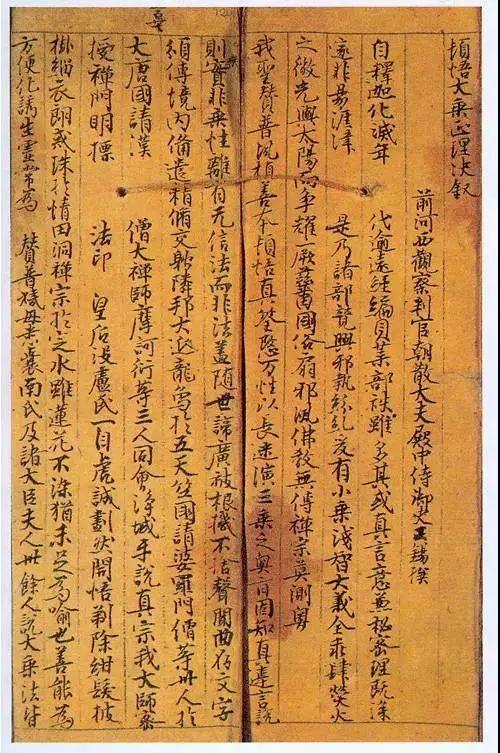 頓悟大乘正理決叙
前河西觀察判官朝散大夫殿中侍御史王錫撰
自釋迦化滅年 代逾遠經編貝葉部帙雖多其或真言意兼秘密理既深
邃非易涯津 是乃諸部競興邪執紛亂爰有小乘淺智大義全乖肆熒火
之微光與太陽而爭耀厥茲蕃國俗扇邪風佛教無傳禪宗莫測粵
我聖贊普夙植善本頓悟真筌愍万性以長迷演三乘之奧旨固知真違言說
則實非乘性離有无信法而非法蓋隨世諦廣被根機不捨聲聞曲存文字
頒傳境內備遣精脩交聘隣邦大延龍象於五天竺國請婆羅門僧等卅人於
大唐國請漢 僧大禪師摩訶衍等三人同會淨城乎說真宗我大師密
授禪門明標 法印 皇后沒盧氏一自虔誠劃然開悟剃除紺髮披
掛緇衣朗戒珠於情田洞禪宗於定水雖蓮花不染猶未足為喻也善能為
方便化誘生靈常為 贊普姨母悉囊南氏及諸大臣夫人卅餘人說大乘法皆